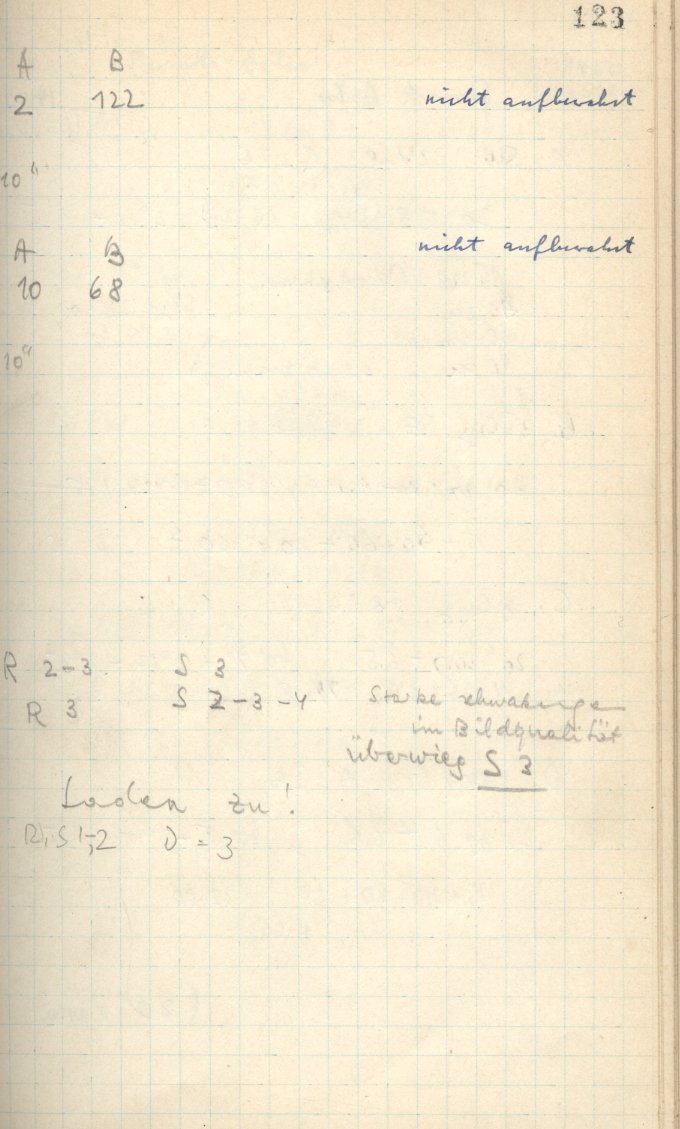 123
A B
2 122 nicht aufbewahrt
10"
A B nicht aufbewahrt
10 68
10"
R 2-3 S 3
R 3 S 2-3-4 Starke schwankungen
im Bildqualität
überwieg S 3
Laden zu!
R, S 1-2 D = 3